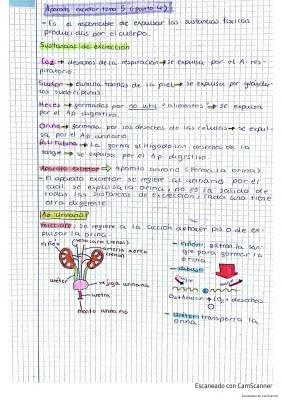 Aparato excretor tema 5 (parte 4)
- Es el responsable de expulsar las sustancias toxicas
producidas por el cuerpo.
Sustancias de excreción
CO2 → desechos de la respiración → se expulsa por el A. res-
piratorio
Sudor → elimina toxinas de la piel → se expulsa por glandu-
las sudoriparas.
Heces → formadas por no util alimentos → se expulsa
por el Ap digestivo.
Orina → formada por los desechos de las celulas → se expul-
sa por el Ap urinario
Bilirrubina → La forma el higado con desechos de la
sangre → se expulsa por el Ap digestivo.
Aparato excretor → aparato urinario (forma la orina)
- El aparato excretor se refiere al urinario por el
cual se expulsa la orina, no es la salida de
todas las sustancias de excreción, cada una tiene
otra diferente.
Ap. Urinario
Micción: se refiere a la acción de hacer pis o de ex-
pulsar la orina.
riñon
vena cava (renal)
arteria aorta
(renal)
uréter
vejiga urinaria
uretra
meato urinario
- riñon: filtran la san-
gre para formar la
orina.
CO2 + desechos
- uréter: transporta la
orina.
Escaneado con CamScanner
Escaneado con CamScanner